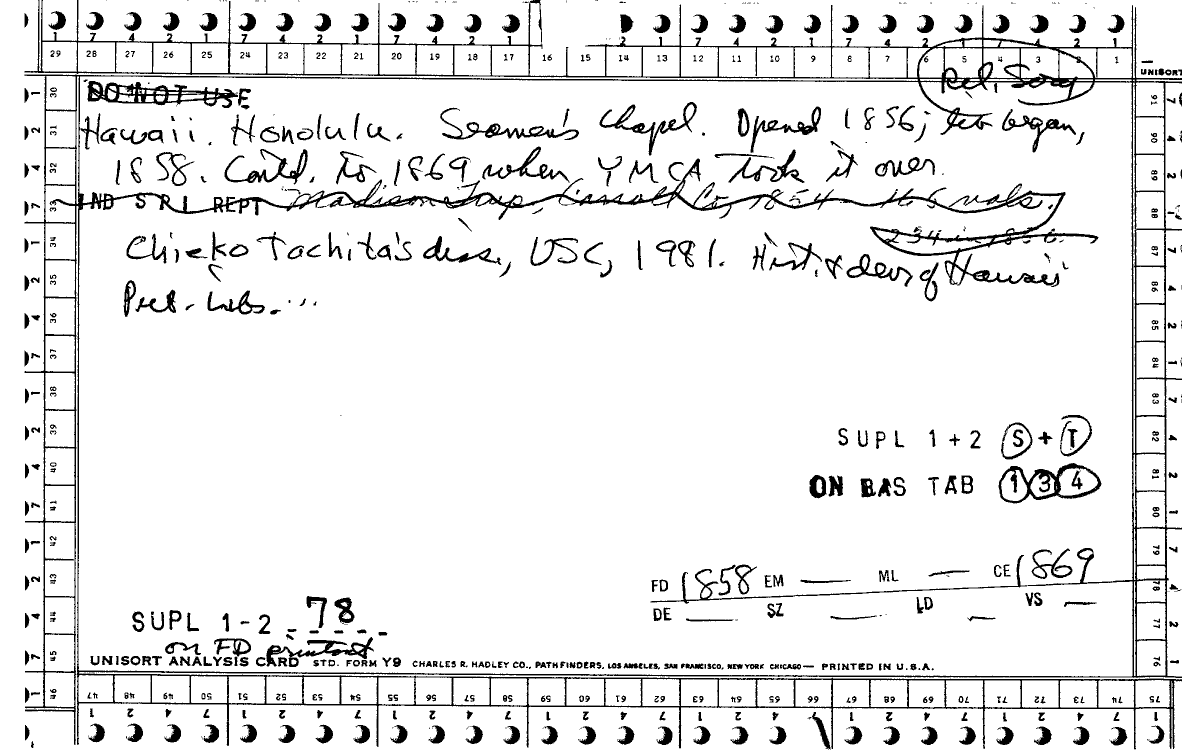 7 4 2 1 7 4 2 1 7 4 2 1 2 1 7 4 2 1 7 4 2 1 7 4 2 1
29 28 27 26 25 24 23 22 21 20 19 18 17 16 15 14 13 12 11 10 9 8 7 6 5 4 3 2 1
UNISORT
Rel. Socy
DO NOT USE
Hawaii. Honolulu. Seamen's Chapel. Opened 1856; lib began,
1858. Contd. to 1869 when YMCA took it over.
IND S R L REPT Madison Twp, Carroll Co, 1854 - 165 vols.
234 in 1856.
Chieko Tachita's diss., USC, 1981. Hist. & dev of Hawaii
Pub. Libs. ...
SUPL 1+2 S + T
ON BAS TAB 1 3 4
FD 1858 EM — ML — CE 1869
DE — SZ — LD — VS —
SUPL 1-2 - 78
on FD printout
UNISORT ANALYSIS CARD STD. FORM Y9 CHARLES R. HADLEY CO., PATHFINDERS, LOS ANGELES, SAN FRANCISCO, NEW YORK CHICAGO — PRINTED IN U.S.A.
30 31 32 33 34 35 36 37 38 39 40 41 42 43 44 45 46
91 90 89 88 87 86 85 84 83 82 81 80 79 78 77 76
47 48 49 50 51 52 53 54 55 56 57 58 59 60 61 62 63 64 65 66 67 68 69 70 71 72 73 74 75
1 2 4 7 1 2 4 7 1 2 4 7 1 2 4 7 1 2 4 7 1 2 4 7 1 2 4 7 1